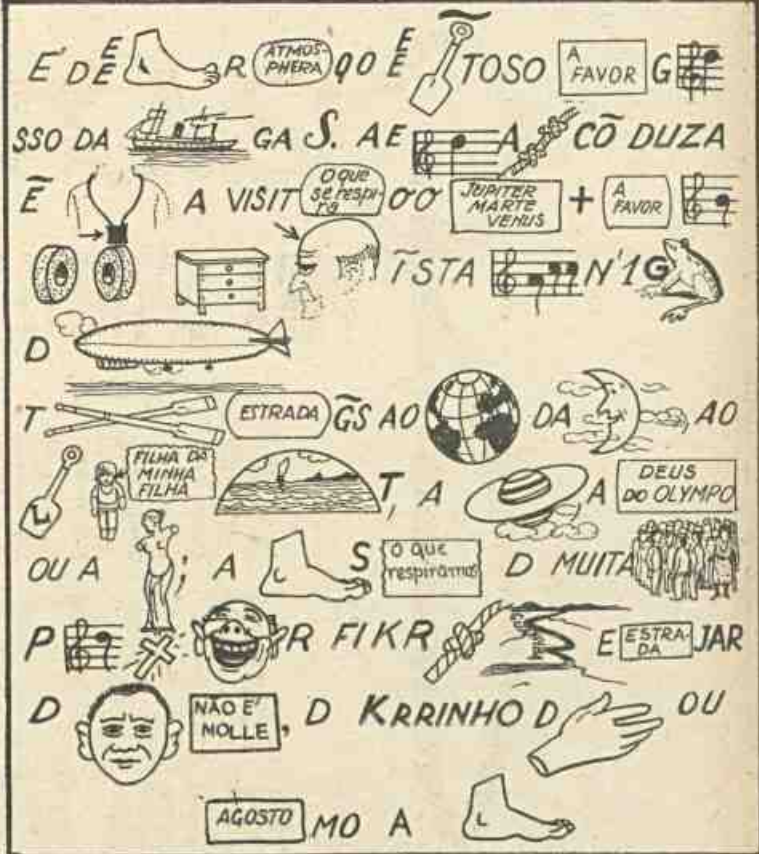 E' D E E E R ATMOSPHERA QO E E TOSO A FAVOR G
SSO DA GA S. A E A CÕ DUZA
Ẽ A VISIT O que se respira OO JUPITER MARTE VENUS + A FAVOR
ĨSTA N'1 G
D
T ESTRADA G̃S AO DA AO
FILHA DA MINHA FILHA T, A A DEUS DO OLYMPO
OU A ; A S O que respiramos D MUITA
P R FIKR E ESTRADA JAR
D NÃO E' MOLLE, D KRRINHO D OU
AGOSTO MO A